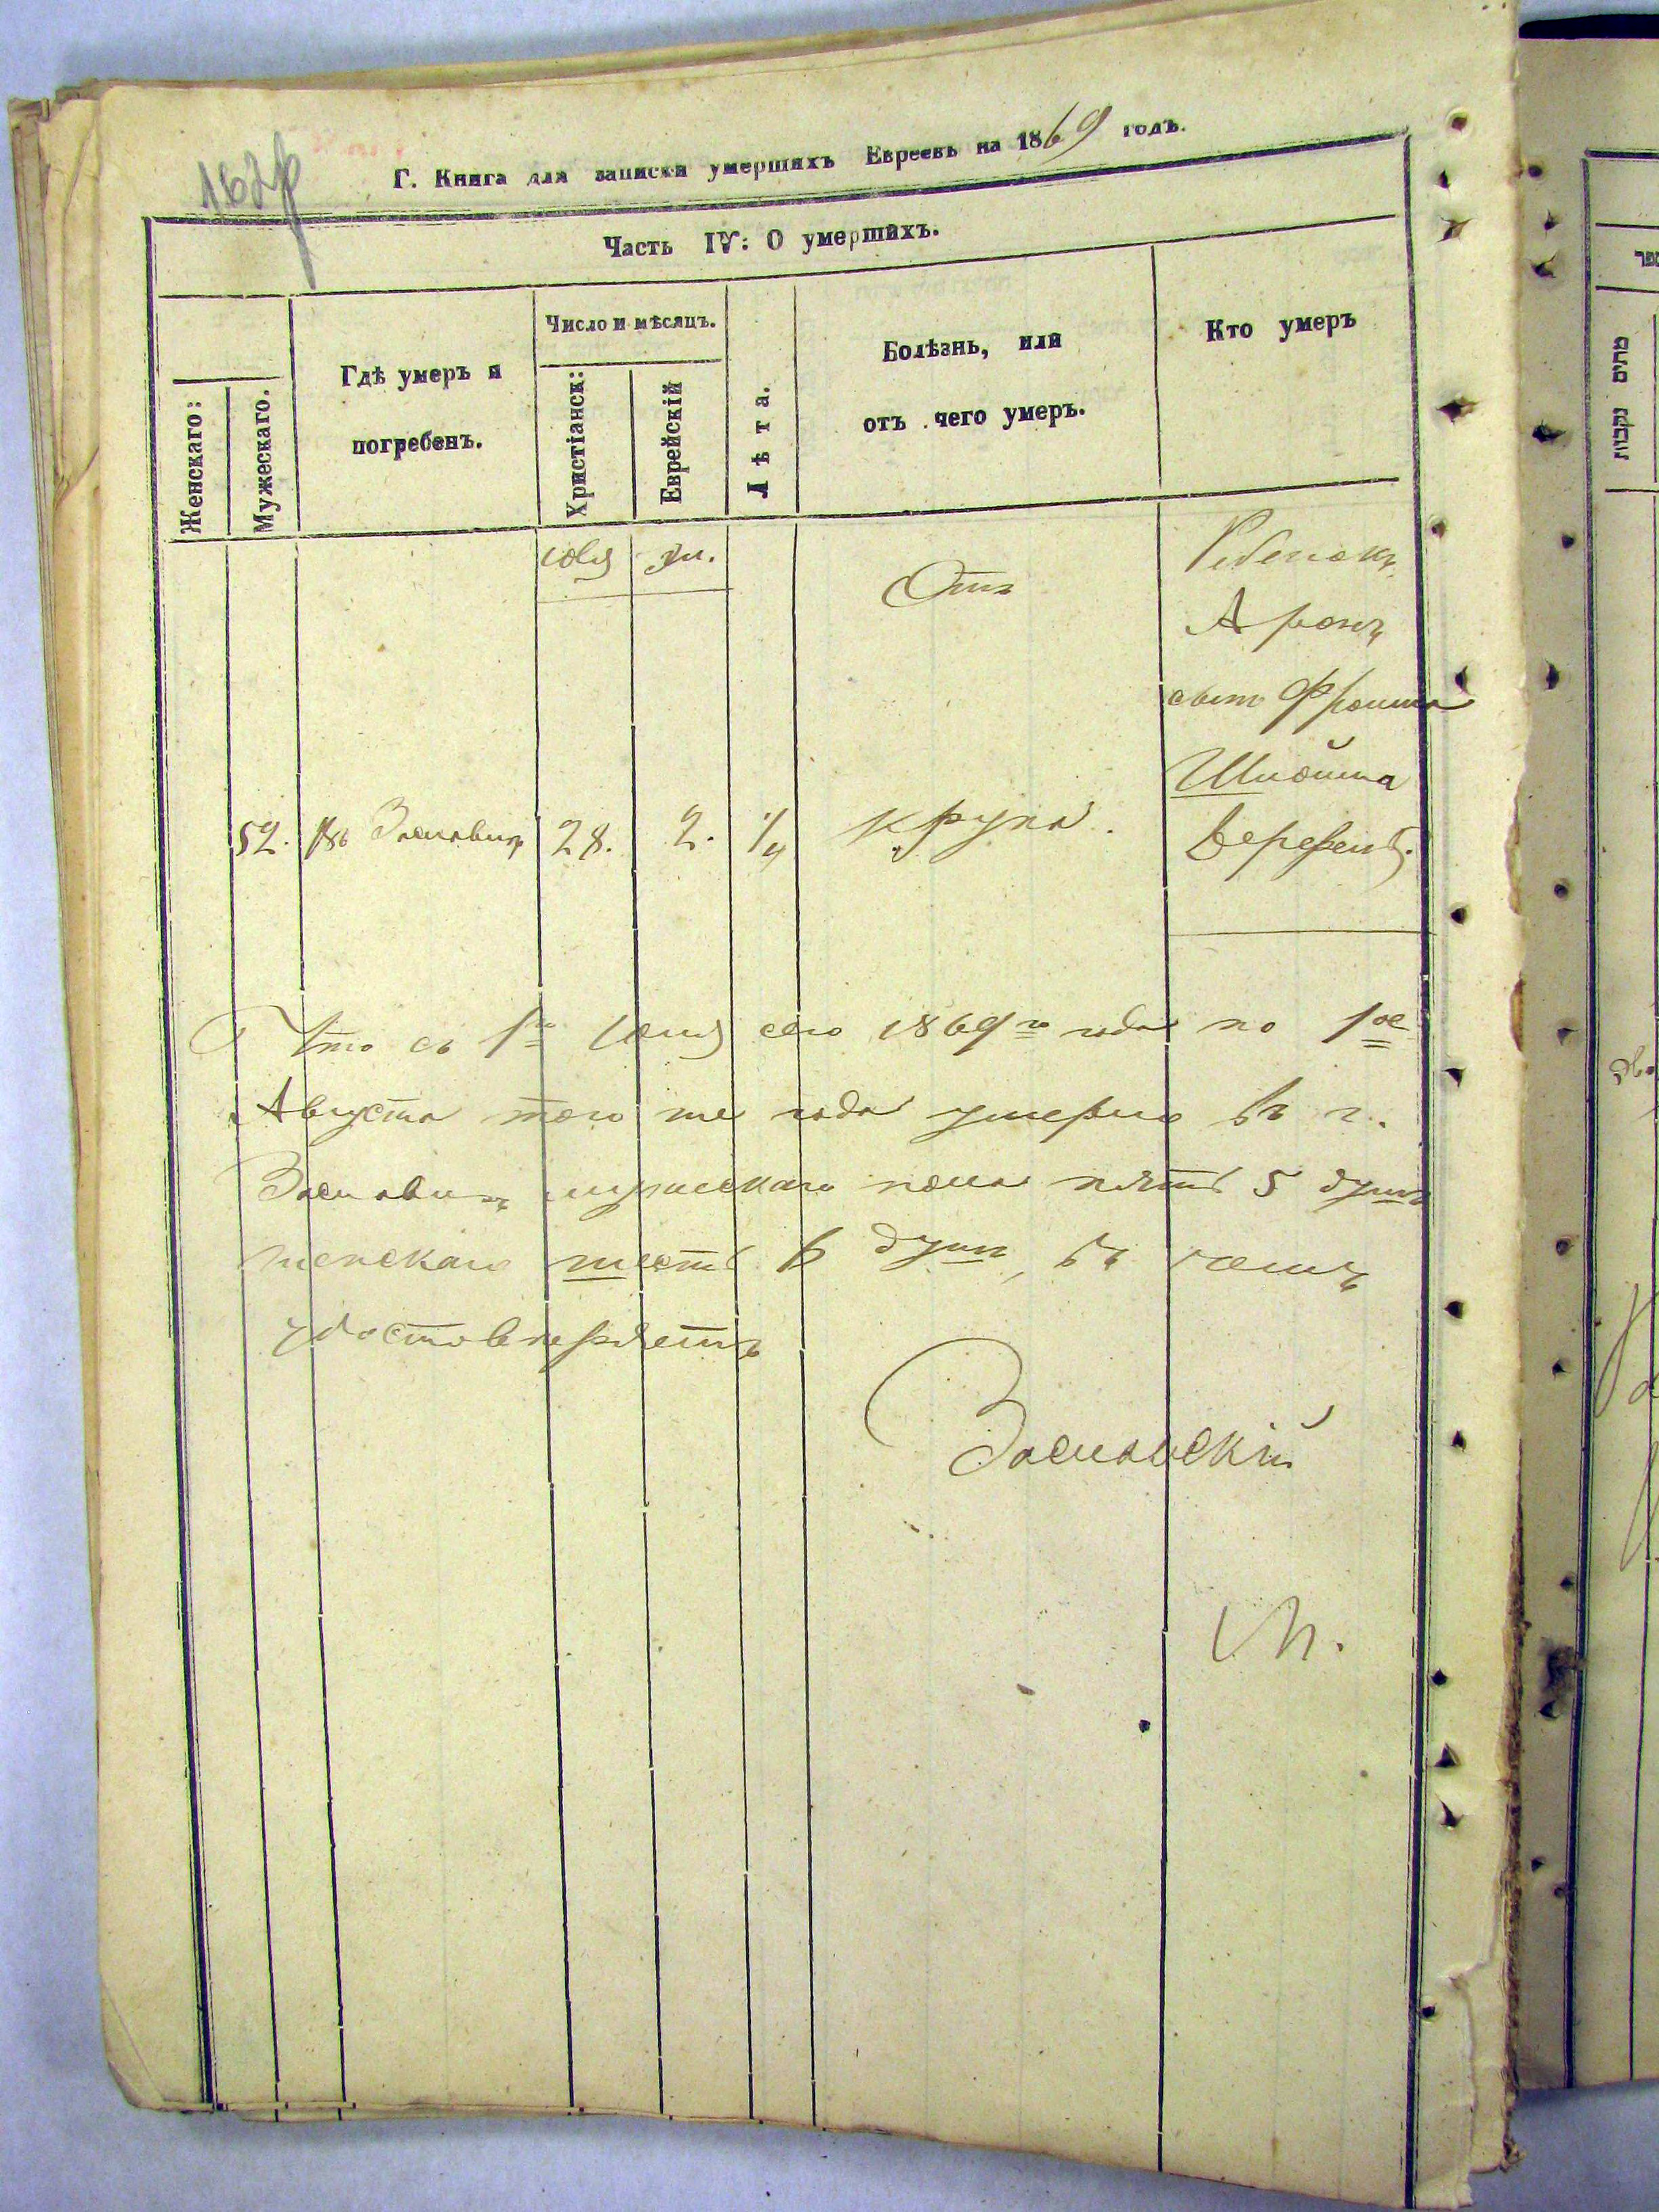 Г. Книга для записки умершихъ Евреевъ на 1869 годъ.
Часть IV: О умершихъ.
Женскаго:
Мужескаго.
Гдѣ умеръ и
погребенъ.
Число и мѣсяцъ.
Христіанск:
Еврейскій
Лѣта.
Болѣзнь, или
отъ чего умеръ.
Кто умеръ
Отъ
Ребенокъ
Аронъ
сынъ
52. Въ Заславлѣ 28. 2. 1/4 крупа.
Что съ 1го Іюля сего 1869го года по 1ое
Августа того же года умерло въ г.
Заславлѣ мужескаго пола пять 5 душъ
женскаго шесть 6 душъ, въ томъ
удостовѣряетъ
Заславскій
מתים נקבות